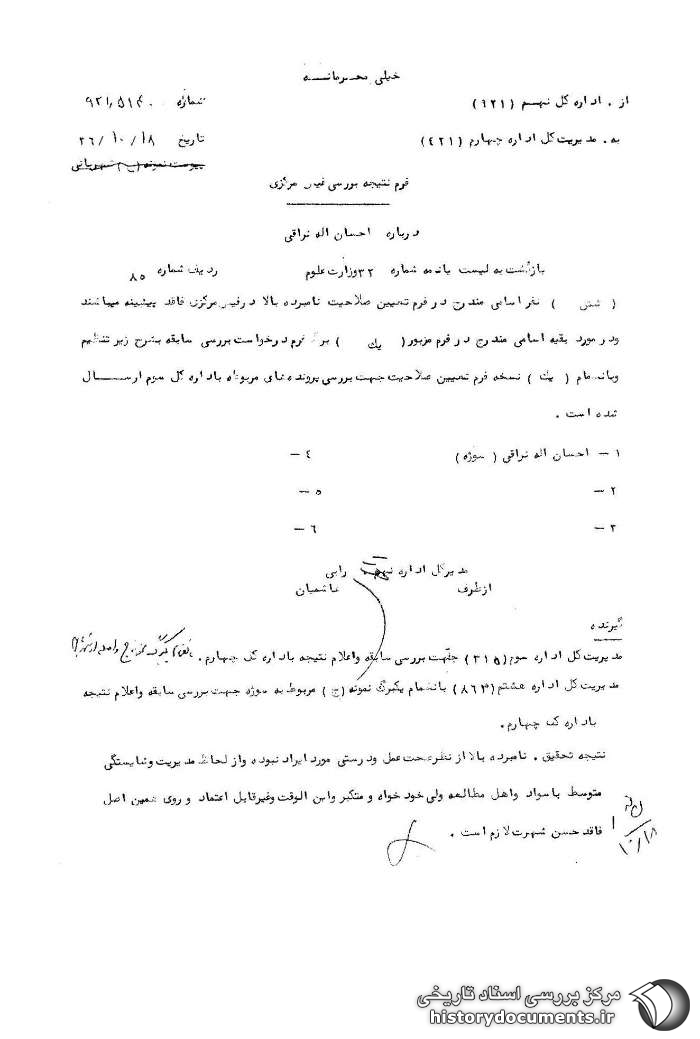 خیلی محرمانه
از . اداره کل نهم (۹۲۱) شماره ۹۲۱٫۵۱۴۰
به . مدیریت کل اداره چهارم (۴۲۱) تاریخ ۱۸/۱۰/۳۶
پیوست نمونه (ج) شهربانی
فرم نتیجه بررسی فیش مرکزی
درباره احسان اله نراقی
بازگشت به لیست بانامه شماره ۳۲وزارت علوم ردیف شماره ۸۵
( شش ) نفر اسامی مندرج در فرم تعیین صلاحیت نامبرده بالا در فیش مرکزی فاقد پیشینه میباشند
ودر مورد بقیه اسامی مندرج در فرم مزبور ( یك ) برگ فرم درخواست بررسی سابقه بشرح زیر تنظیم
وبانضمام ( یك ) نسخه فرم تعیین صلاحیت جهت بررسی پرونده‌های مربوطه باداره کل سوم ارسال
شده است .
۱ – احسان اله نراقی ( سوژه ) ۴ –
۲ – ۵ –
۳ – ۶ –
مدیرکل اداره نهم
ازطرف هاشمیان
گیرنده
مدیریت کل اداره سوم (۳۱۵) جهت بررسی سابقه واعلام نتیجه باداره کل چهارم .
مدیریت کل اداره هشتم (۸۶۳) بانضمام یکبرگ نمونه (ج) مربوط به سوژه جهت بررسی سابقه واعلام نتیجه
باداره کل چهارم .
نتیجه تحقیق . نامبرده بالا از نظر صحت عمل ودرستی مورد ایراد نبوده واز لحاظ مدیریت وشایستگی
متوسط باسواد واهل مطالعه ولی خود خواه و متکبر وابن الوقت وغیرقابل اعتماد و روی همین اصل
فاقد حسن شهرت لازم است .
۱۰/۱۸
مرکز بررسی اسناد تاریخی
historydocuments.ir